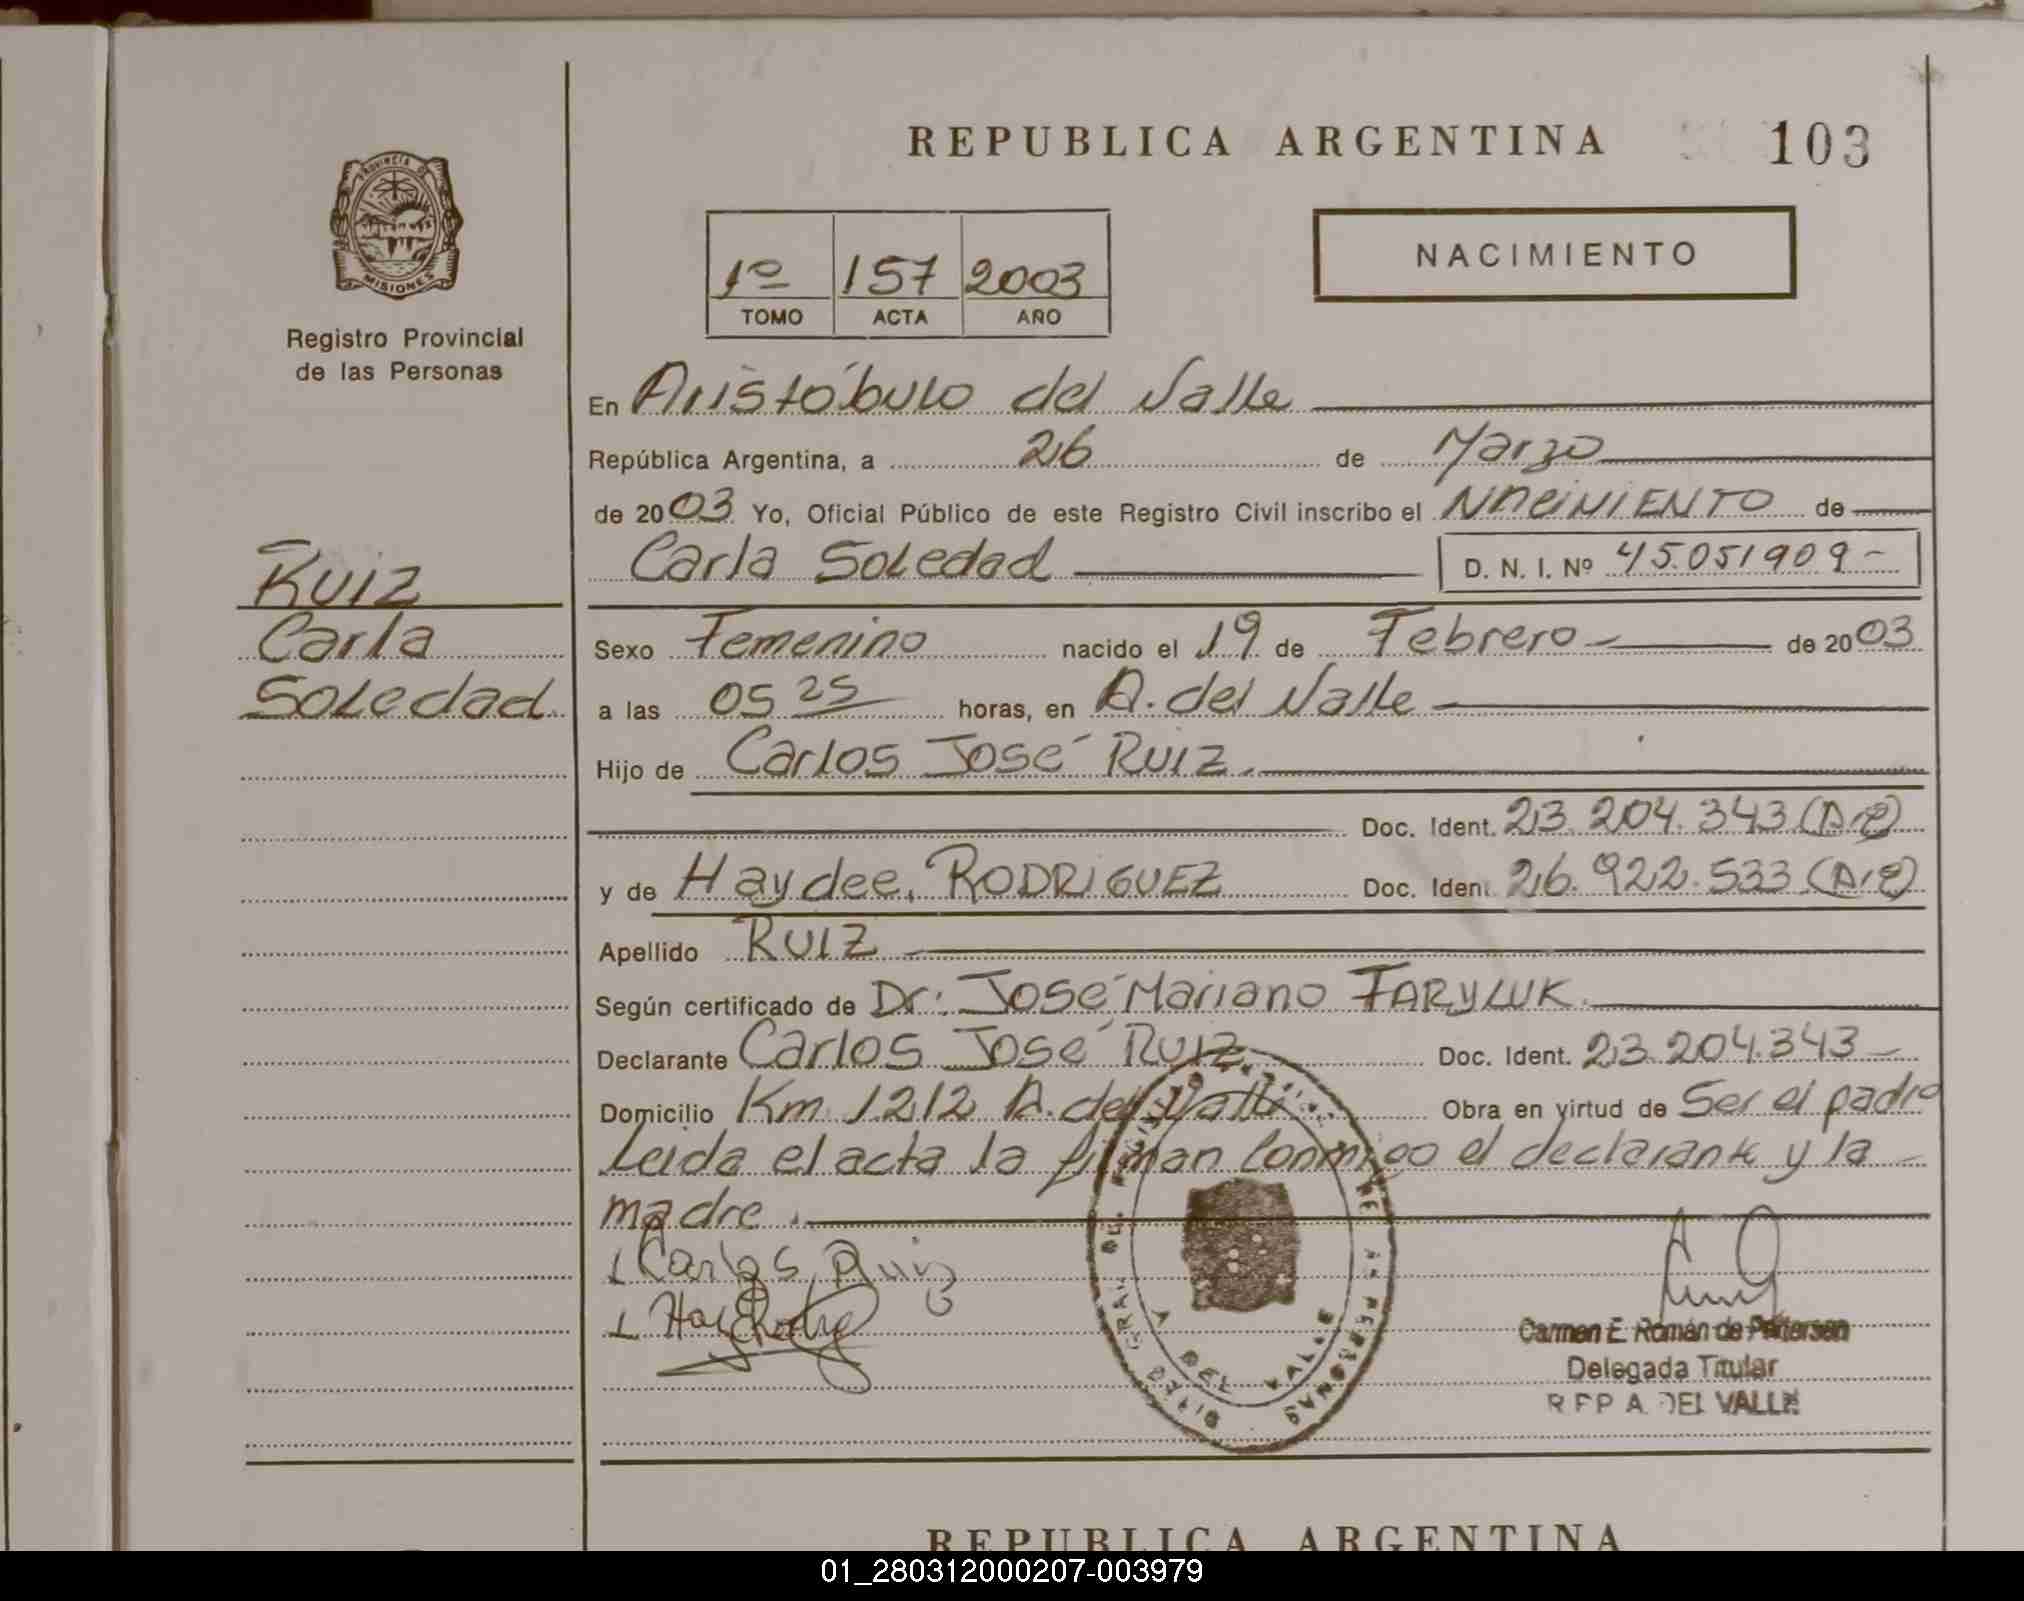 REPUBLICA ARGENTINA 103
PROVINCIA DE
MISIONES
Registro Provincial
de las Personas
NACIMIENTO
1º 157 2003
TOMO ACTA AÑO
En Aristóbulo del Valle
República Argentina, a 26 de Marzo
de 2003 Yo, Oficial Público de este Registro Civil inscribo el NACIMIENTO de
Carla Soledad D. N. I. Nº 45.051909-
Ruiz
Carla
Soledad
Sexo Femenino nacido el 19 de Febrero de 2003
a las 05 25 horas, en A. del Valle
Hijo de Carlos José Ruiz
Doc. Ident. 23.204.343
y de Haydee, RODRIGUEZ Doc. Iden 26.922.533
Apellido RUIZ
Según certificado de Dr: José Mariano TARYLUK
Declarante Carlos José Ruiz Doc. Ident. 23.204.343
Domicilio Km 1212 A. del Valle Obra en virtud de Ser el padre
Leida el acta la firman Conmigo el declarante y la
madre.
Carlos Ruiz
Carmen E. Román de Pettersen
Delegada Titular
R P P A. DEL VALLE
REPUBLICA ARGENTINA
01_280312000207-003979